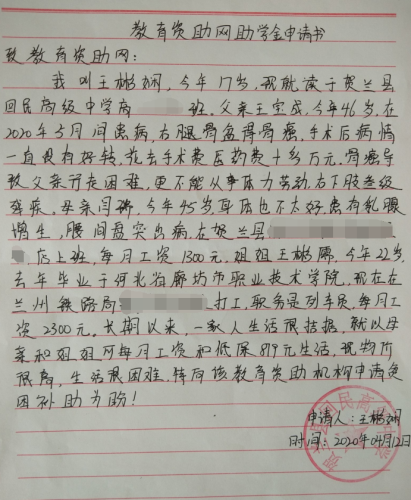 教育资助网助学金申请书
致教育资助网:
我叫王彬娴,今年17岁,现就读于贺兰县
回民高级中学高 班,父亲王宝成,今年46岁,在
2020年3月间患病,右腿骨盆得骨癌,手术后病情
一直没有好转,花去手术费医药费十多万元。骨癌导
致父亲行走困难,更不能从事体力劳动,右下肢叁级
残疾。母亲闫 ,今年45岁,身体也不太好,患有乳腺
增生,腰间盘突出病,在贺兰县
店上班,每月工资1300元,姐姐王彬 ,今年22岁,
去年毕业于河北省廊坊市职业技术学院,现在在
兰州铁路局 打工,职务是列车员,每月工
资2300元。长期以来,一家人生活很拮据,就以母
亲和姐姐的每月工资和低保819元生活,现物价
很高,生活很困难。特向该教育资助机构申请贫
困补助为盼!
申请人:王彬娴
时间:2020年04月12日